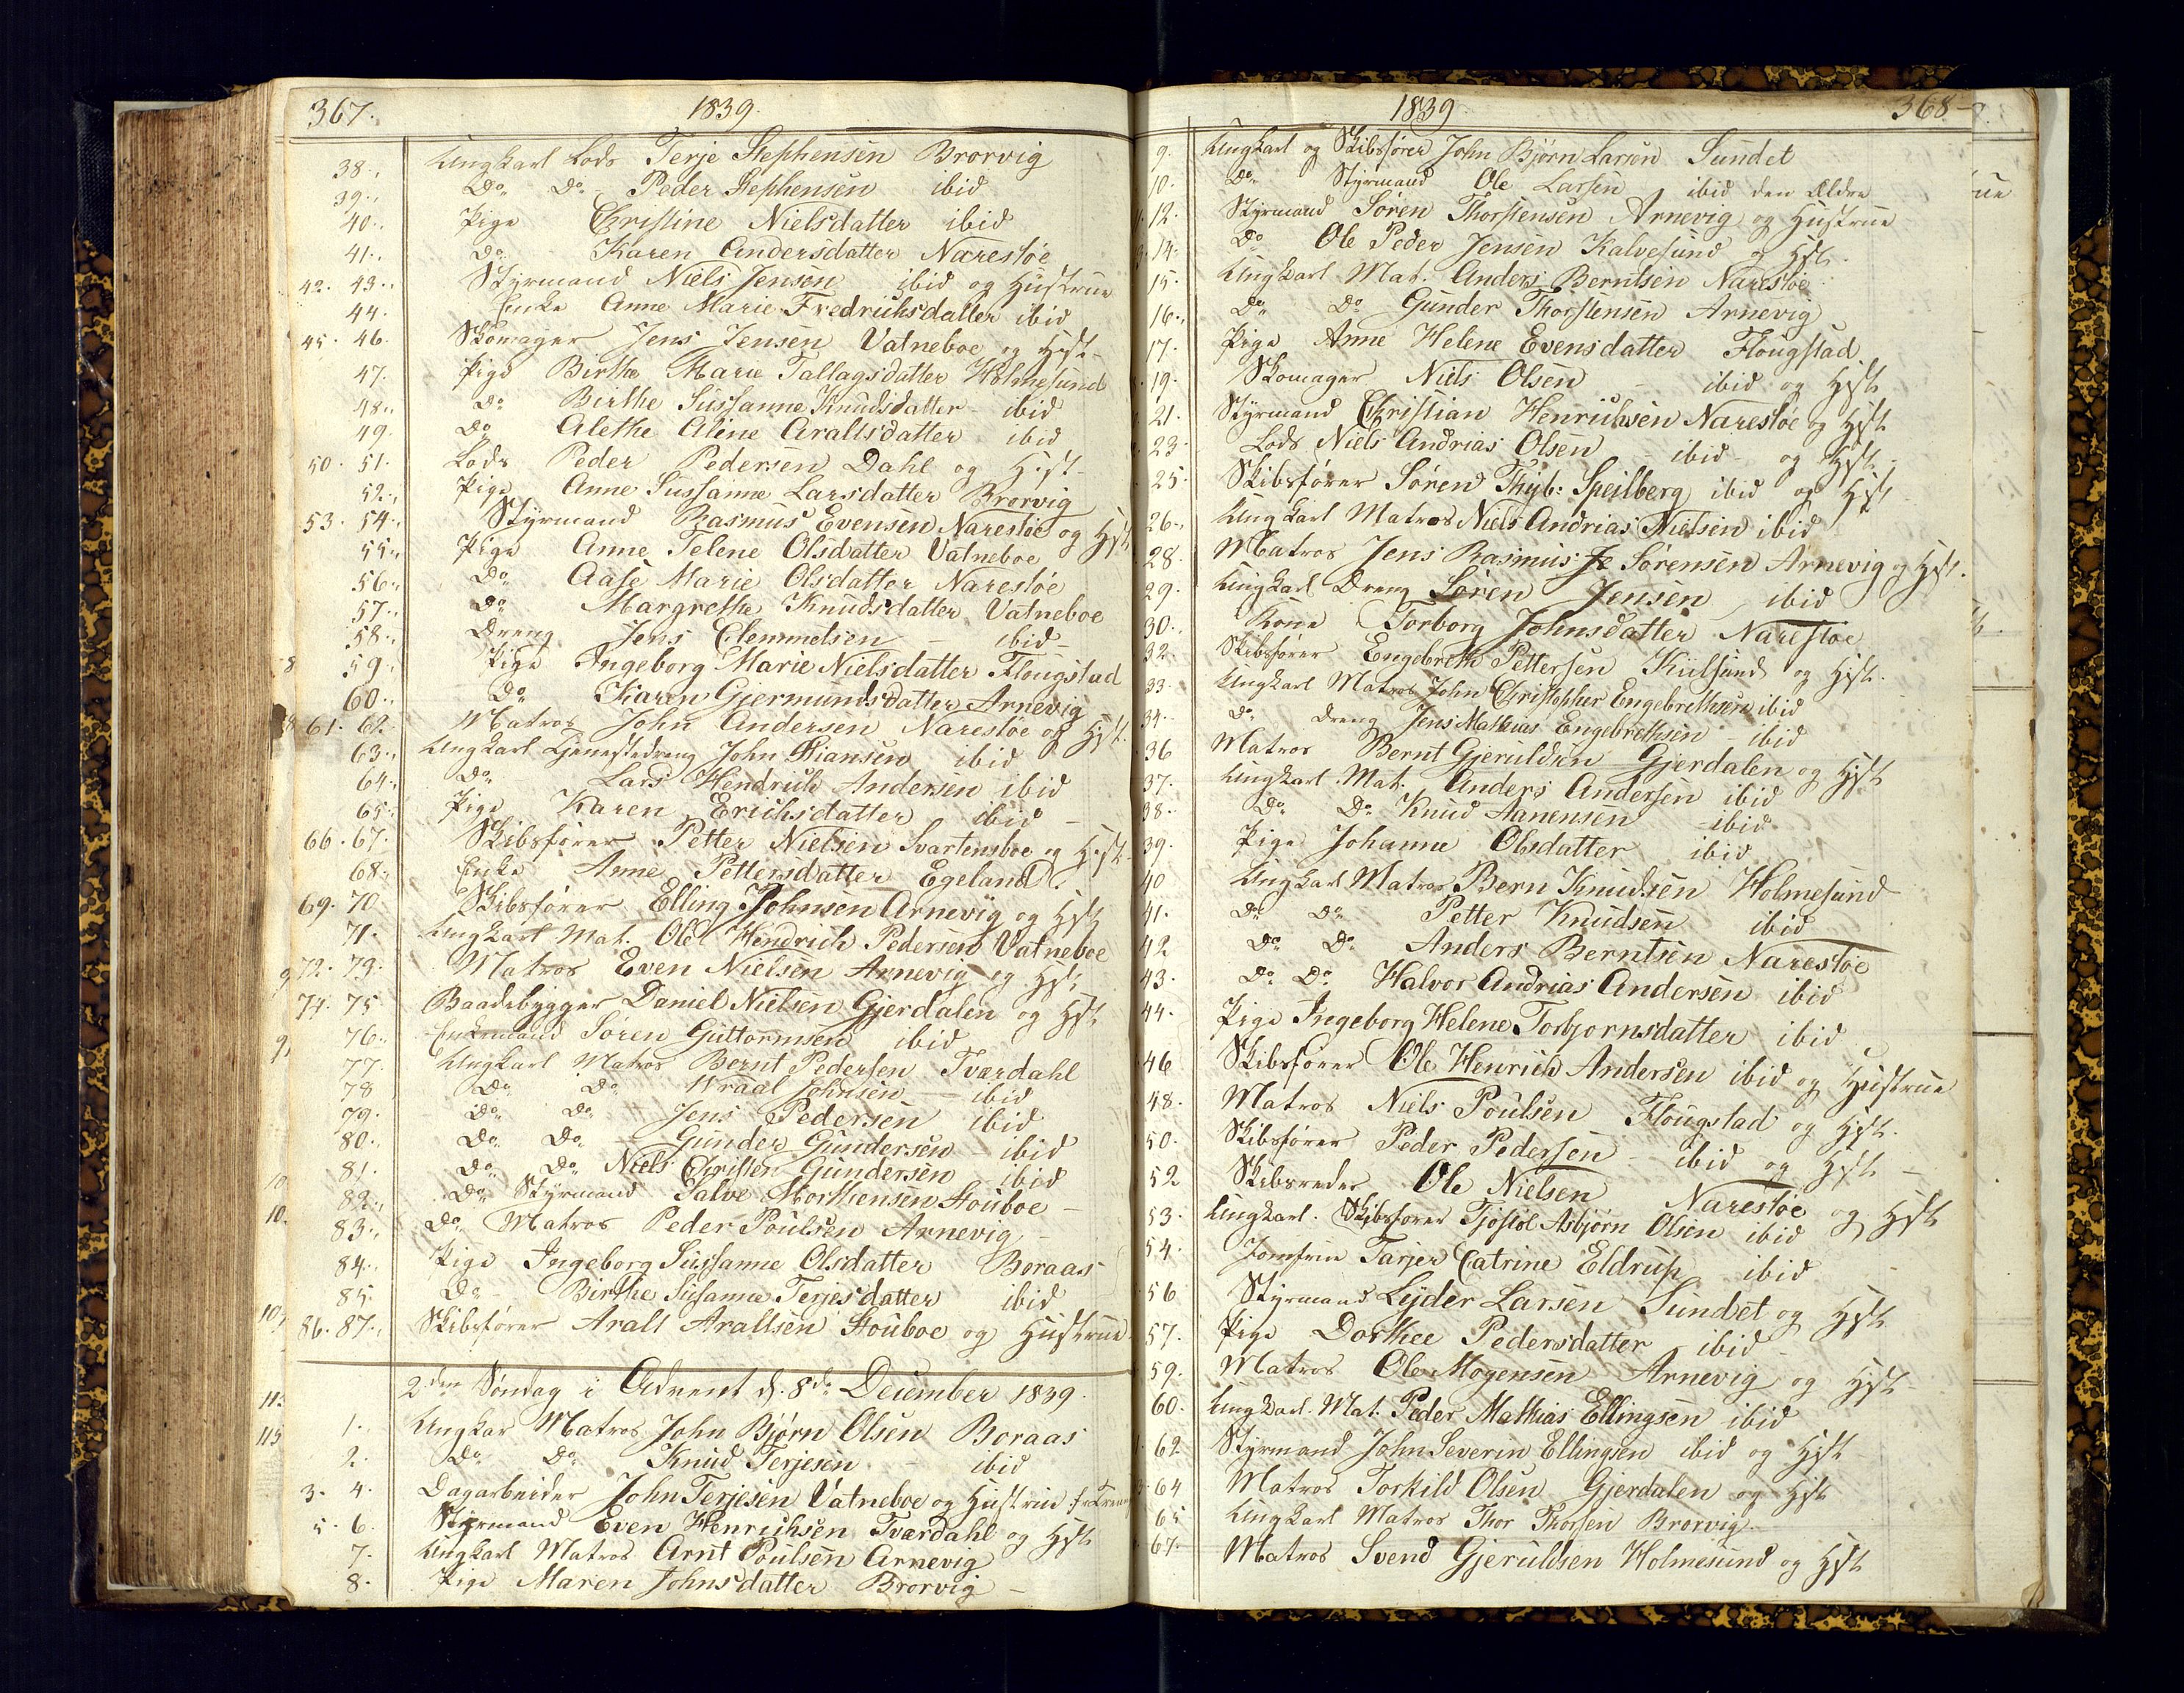 367. 1839.
38. Ungkarl Lods Terje Stephensen Brorvig
39. Do Do Peder Stephensen ibid
40. Pige Christine Nielsdatter ibid
41. Do Karen Andersdatter Narestøe
42. 43. Styrmand Niels Jensen ibid og Hustrue
44. Enke Anne Marie Fredrichsdatter ibid
45. 46. Skomager Jens Jensen Vatneboe og Hust.
47. Pige Birthe Marie Tallagsdatter Holmesund
48. Do Birthe Sussanne Knudsdatter ibid
49. Do Alethe Aline Araltsdatter ibid
50. 51. Lods Peder Pedersen Dahl og Hust.
52. Pige Anne Sussanne Larsdatter Brorvig
53. 54. Styrmand Rasmus Evensen Narestøe og Hust
55. Pige Anne Telene Olsdatter Vatneboe
56. Do Aase Marie Olsdatter Narestøe
57. Do Margrethe Knudsdatter Vatneboe
58. Dreng Jens Clemmetsen ibid
59. Pige Ingeborg Marie Nielsdatter Flougstad
60. Do Karen Gjermundsdatter Arnevig
61. 62. Matros John Andersen Narestøe og Hust.
63. Ungkarl Tjenestedreng John ibid
64. Do Lars Hendrich Andersen ibid
65. Pige Karen Erichsdatter ibid
66. 67. Skibsfører Petter Nielsen Svartensboe og Hust
68. Enke Anne Pettersdatter Egeland
69. 70. Skibsfører Elling Johnsen Arnevig og Hust
71. Ungkarl Mat. Ole Hendrich Pedersen Vatneboe
72. 73. Matros Even Nielsen Arnevig og Hust
74. 75 Baadebygger Daniel Nielsen Gjerdalen og Hust
76. Enkemand Søren Guttormsen ibid
77. Ungkarl Matros Bernt Pedersen Tværdahl
78 Do Do Wraal Johnsen ibid
79. Do Do Jens Pedersen ibid
80. Do Do Gunder Gundersen ibid
81. Do Do Niels Christen Gundersen ibid
82. Do Styrmand Salve Morthensen Houboe
83. Do Matros Peder Poulsen Arnevig
84. Pige Ingeborg Sussanne Olsdatter Boraas
85. Do Birthe Susanne Terjesdatter ibid
86. 87. Skibsfører Aralt Araltsen Houboe og Hustrue
2den Søndag i Advent d. 8de December 1839.
1. Ungkar Matros John Bjørn Olsen Boraas
2. Do Do Knud Terjesen ibid
3. 4. Dagarbeider John Terjesen Vatneboe og Hustrue
5. 6. Styrmand Even Henrichsen Tværdahl og Hust
7. Ungkarl Matros Arnt Poulsen Arnevig
8. Pige Maren Johnsdatter Brorvig
1839 368
9. Ungkarl og Skibsfører John Bjørn Larsen Sundet
10. Do Styrmand Ole Larsen ibid den Ældre
12. Styrmand Søren Thorstensen Arnevig og Hustrue
14. Do Ole Peder Jensen Kalvesund og Hst.
15. Ungkarl Mat. Anders Berntsen Narestøe
16. Do Do Gunder Thorstensen Arnevig
17. Pige Anne Helene Evensdatter Flougstad
19. Skomager Niels Olsen ibid og Hust
21. Styrmand Christian Henrichsen Narestøe og Hust
23. Lods Niels Andrias Olsen ibid og Hust.
25. Skibsfører Søren Thyb: Speilberg ibid og Hust
26. Ungkarl Matros Niels Andrias Nielsen ibid
28. Matros Jens Rasmus Sørensen Arnevig og Hust.
29. Ungkarl Dreng Søren Jensen ibid
30. Kone Torborg Johnsdatter Narestøe
32. Skibsfører Engebreth Pettersen Kielsund og Hust.
33. Ungkarl Matros John Christopher Engebrethsen ibid
34. Do Dreng Jens Mathias Engebrethsen ibid
36 Matros Bernt Gjeruldsen Gjerdalen og Hust
37. Ungkarl Mat. Anders Andersen ibid
38. Do Do Knud Aanensen ibid
39. Pige Johanne Olsdatter ibid
40 Ungkarl Matros Bern Knudsen Holmesund
41. Do Do Petter Knudsen ibid
42 Do Do Anders Berntsen Narestøe
43. Do Do Halvor Andrias Andersen ibid
44. Pige Ingeborg Helene Torbjornsdatter ibid
46 Skibsfører Ole Henrich Andersen ibid og Hustrue
48. Matros Niels Poulsen Flougstad og Hust.
50. Skibsfører Peder Pedersen ibid og Hust
52 Skibsreder Ole Nielsen Narestøe og Hust
53. Ungkarl. Skibsfører Tjøstol Asbjørn Olsen ibid
54. Jomfrue Tarjer Catrine Eldrup ibid
56 Styrmand Lyder Larsen Sundet og Hust
57. Pige Dorthee Pedersdatter ibid
59. Matros Ole Mogensen Arnevig og Hust
60. Ungkarl. Mat. Peder Mathias Ellingsen ibid
62. Styrmand John Severin Ellingsen ibid og Hust
64 Matros Torkild Olsen Gjerdalen og Hust
65 Ungkarl Matros Thor Thorsen Brorvig
67. Matros Svend Gjeruldsen Holmesund og Hust